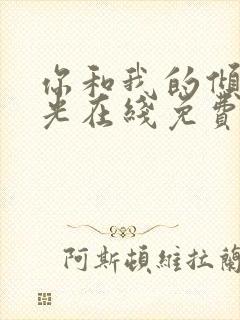 你和我的傾
光在綫免費
阿斯頓維拉蘭